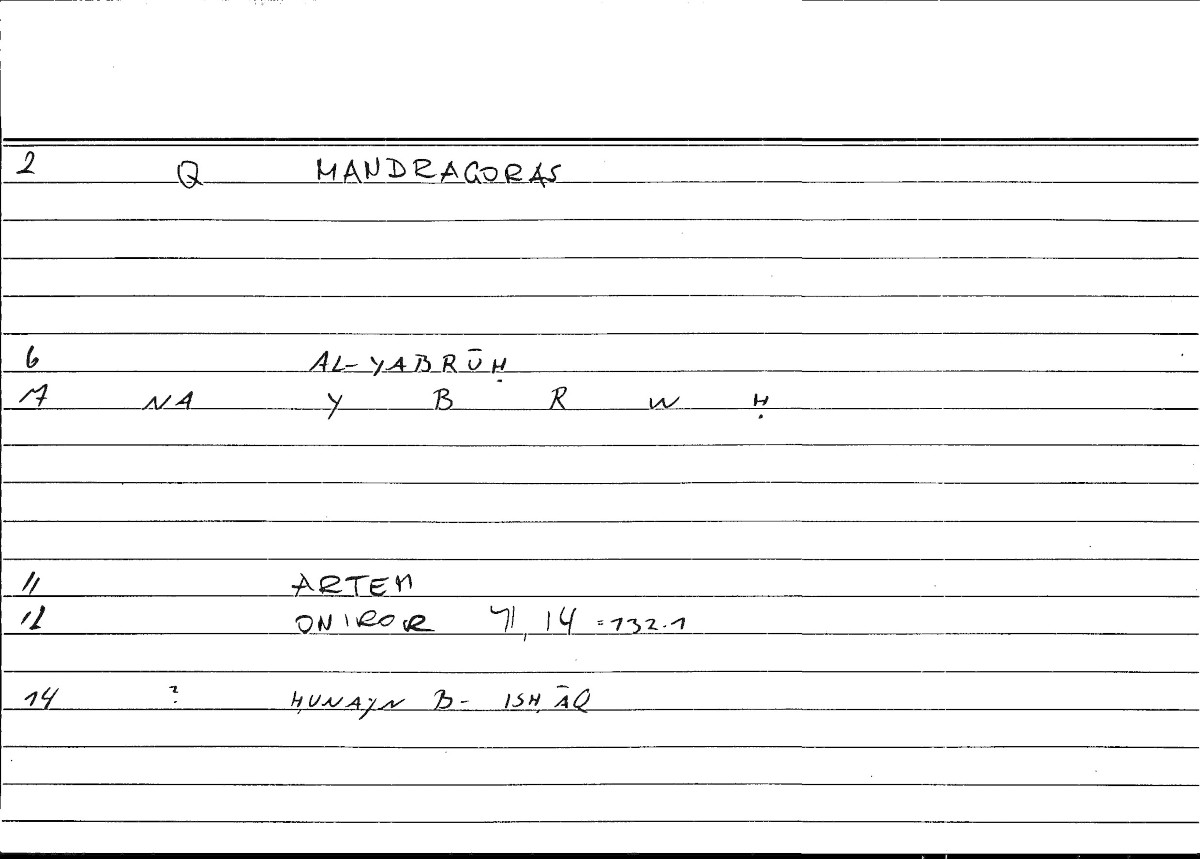 2 Q MANDRAGORAS
6 AL-YABRŪḤ
17 NA Y B R W Ḥ
11 ARTEM
12 ONIROR 71, 14 = 132.1
14 ? ḤUNAYN B- ISḤĀQ